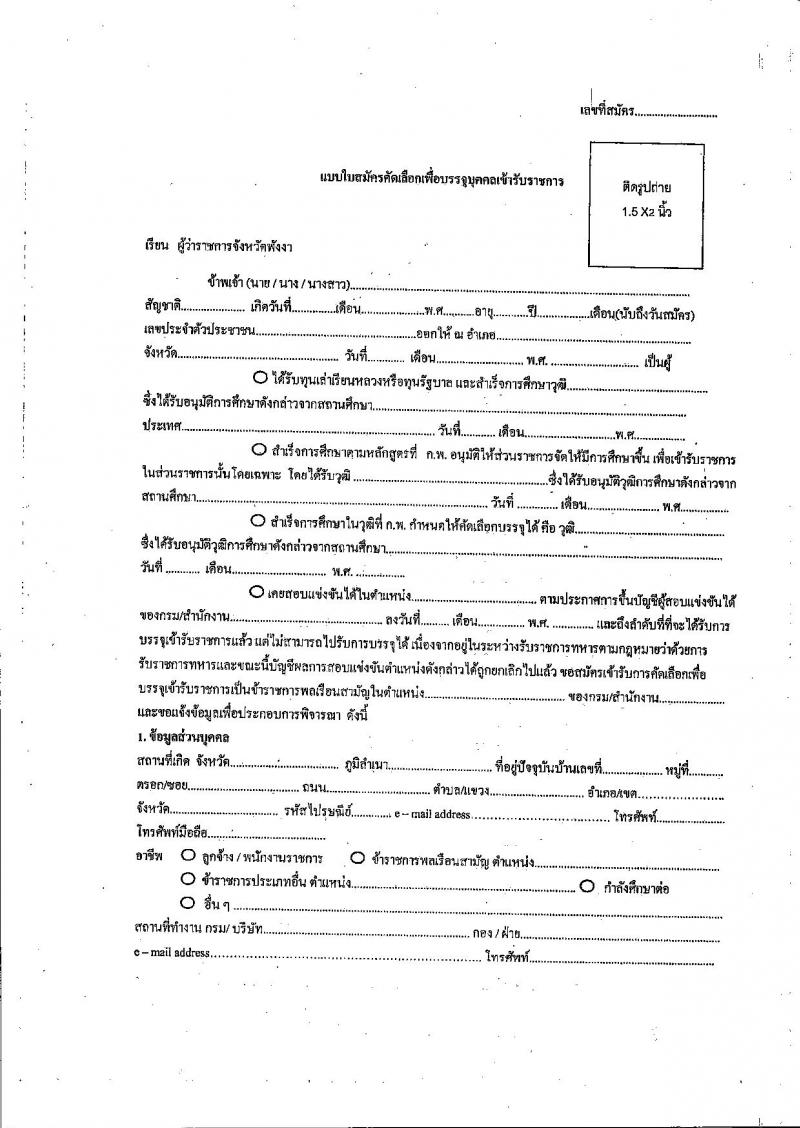 เลขที่สมัคร............................
แบบใบสมัครคัดเลือกเพื่อบรรจุบุคคลเข้ารับราชการ
ติดรูปถ่าย
1.5 X2 นิ้ว
เรียน ผู้ว่าราชการจังหวัดพังงา
ข้าพเจ้า (นาย / นาง / นางสาว)..............................
สัญชาติ.................... เกิดวันที่..............เดือน....................พ.ศ..........อายุ...........ปี.................เดือน(นับถึงวันสมัคร)
เลขประจำตัวประชาชน..............................ออกให้ ณ อำเภอ..............................
จังหวัด.............................. วันที่............ เดือน.............................. พ.ศ. .............................. เป็นผู้
○ ได้รับทุนเล่าเรียนหลวงหรือทุนรัฐบาล และสำเร็จการศึกษาวุฒิ..............................
ซึ่งได้รับอนุมัติการศึกษาดังกล่าวจากสถานศึกษา..............................
ประเทศ.............................. วันที่............ เดือน..............................พ.ศ.................
○ สำเร็จการศึกษาตามหลักสูตรที่ ก.พ. อนุมัติให้ส่วนราชการจัดให้มีการศึกษาขึ้น เพื่อเข้ารับราชการ
ในส่วนราชการนั้นโดยเฉพาะ โดยได้รับวุฒิ ..............................ซึ่งได้รับอนุมัติวุฒิการศึกษาดังกล่าวจาก
สถานศึกษา.............................. วันที่ ............ เดือน......................... พ.ศ................
○ สำเร็จการศึกษาในวุฒิที่ ก.พ. กำหนดให้คัดเลือกบรรจุได้ คือ วุฒิ..............................
ซึ่งได้รับอนุมัติวุฒิการศึกษาดังกล่าวจากสถานศึกษา..............................
วันที่ ............ เดือน.............................. พ.ศ. .................
○ เคยสอบแข่งขันได้ในตำแหน่ง.............................. ตามประกาศการขึ้นบัญชีผู้สอบแข่งขันได้
ของกรม/สำนักงาน.............................. ลงวันที่.......... เดือน................. พ.ศ. .............. และถึงลำดับที่ที่จะได้รับการ
บรรจุเข้ารับราชการแล้ว แต่ไม่สามารถไปรับการบรรจุได้ เนื่องจากอยู่ในระหว่างรับราชการทหารตามกฎหมายว่าด้วยการ
รับราชการทหารและขณะนี้บัญชีผลการสอบแข่งขันตำแหน่งดังกล่าวได้ถูกยกเลิกไปแล้ว ขอสมัครเข้ารับการคัดเลือกเพื่อ
บรรจุเข้ารับราชการเป็นข้าราชการพลเรือนสามัญในตำแหน่ง.............................. ของกรม/สำนักงาน......................
และขอแจ้งข้อมูลเพื่อประกอบการพิจารณา ดังนี้
1. ข้อมูลส่วนบุคคล
สถานที่เกิด จังหวัด.............................. ภูมิลำเนา.............................. ที่อยู่ปัจจุบันบ้านเลขที่.................... หมู่ที่............
ตรอก/ซอย.............................. ถนน.............................. ตำบล/แขวง.............................. อำเภอ/เขต..............................
จังหวัด.............................. รหัสไปรษณีย์............. e – mail address.............................. โทรศัพท์......................
โทรศัพท์มือถือ..............................
อาชีพ ○ ลูกจ้าง / พนักงานราชการ ○ ข้าราชการพลเรือนสามัญ ตำแหน่ง..............................
○ ข้าราชการประเภทอื่น ตำแหน่ง.............................. ○ กำลังศึกษาต่อ
○ อื่น ๆ ..............................
สถานที่ทำงาน กรม/ บริษัท.............................. กอง / ฝ่าย..............................
e – mail address.............................. โทรศัพท์..............................